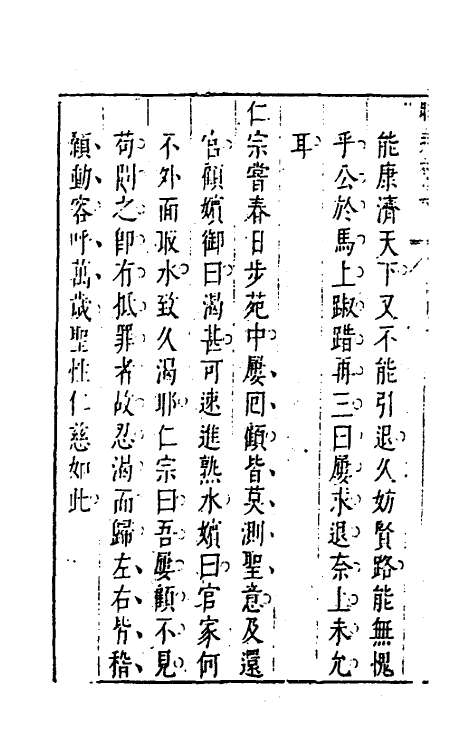 能康濟天下又不能引退久妨賢路能無愧
乎公於馬上踧踖再三曰屢求退奈上未允
耳
仁宗嘗春日步苑中屢回顧皆莫測聖意及還
宫顧嬪御曰渴甚可速進熟水嬪曰官家何
不外面取水致久渴耶仁宗曰吾屢顧不見
苟問之即有抵罪者故忍渴而歸左右皆稽
顙動容呼萬歲聖性仁慈如此